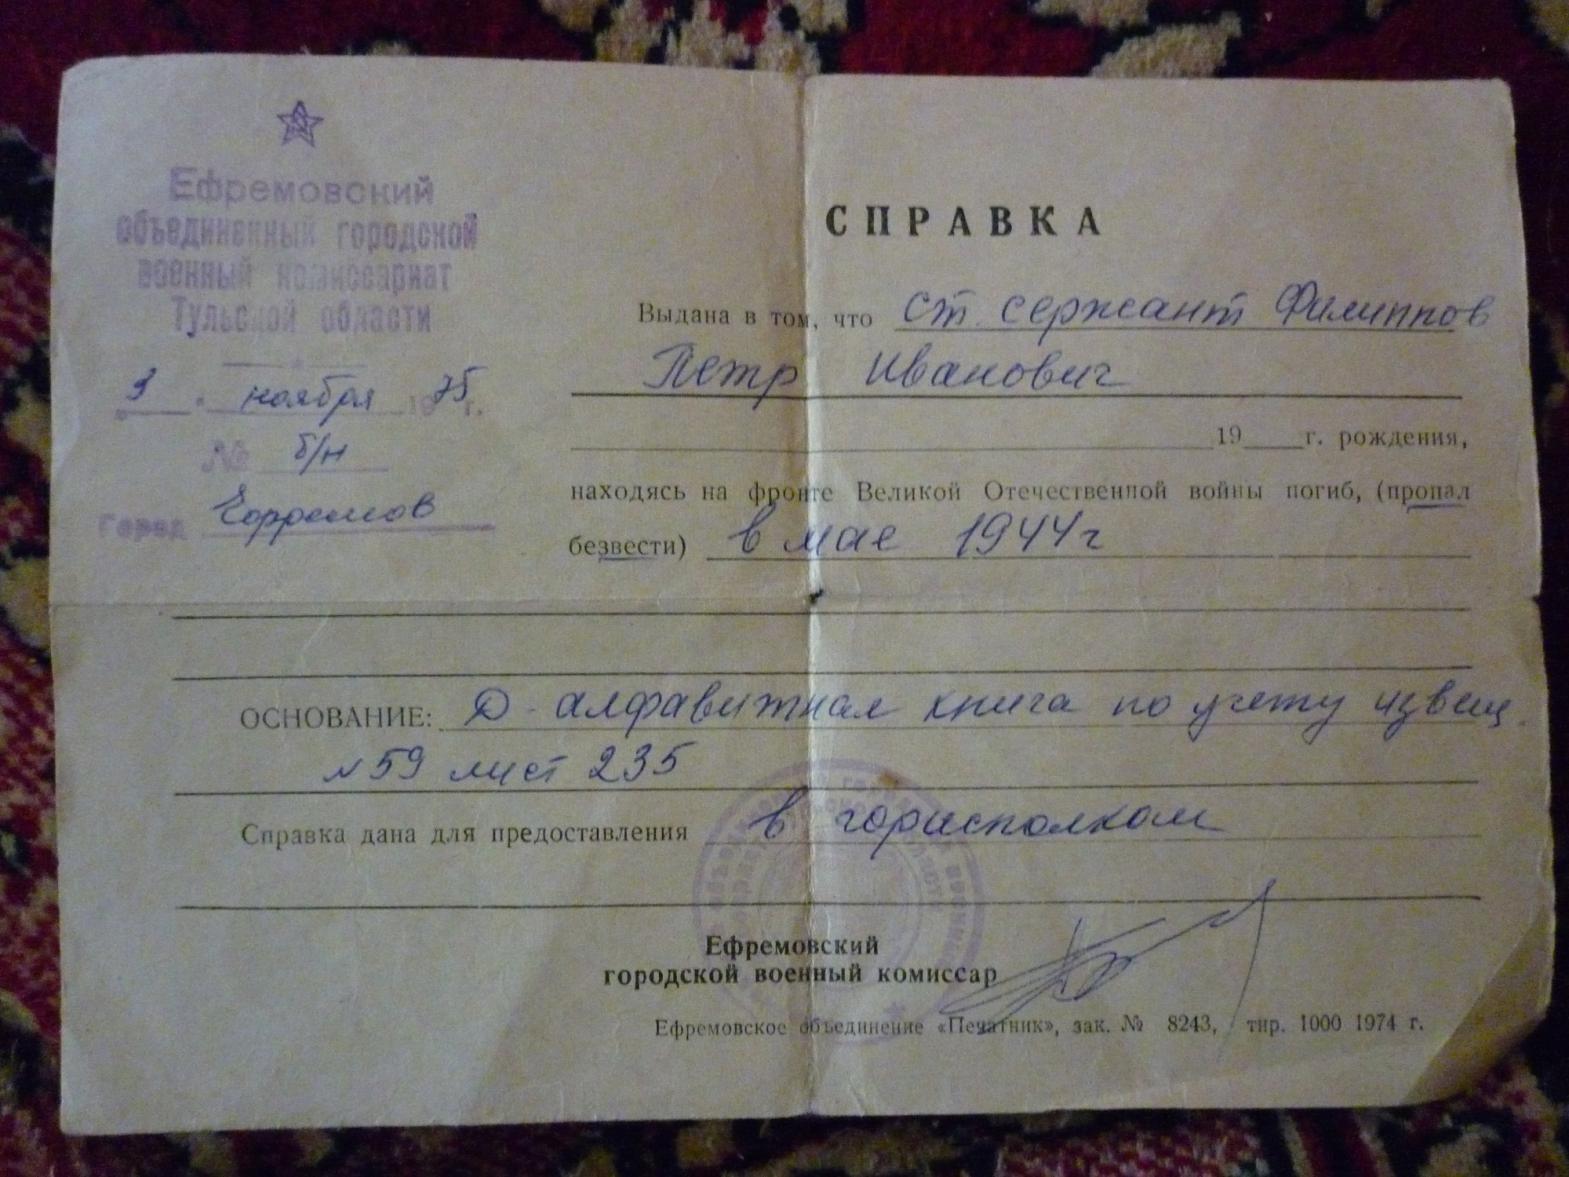 Ефремовский
объединенный городской
военный комиссариат
Тульской области
"3" ноября 1975 г.
№ б/н
город Ефремов
СПРАВКА
Выдана в том, что ст. сержант Филиппов
Петр Иванович
19 г. рождения,
находясь на фронте Великой Отечественной войны погиб, (пропал
безвести) в мае 1944 г
ОСНОВАНИЕ: Ф - алфавитная книга по учету извещ.
№ 59 лист 235
Справка дана для предоставления в горисполком
Ефремовский
городской военный комиссар
Ефремовское объединение «Печатник», зак. № 8243, тир. 1000 1974 г.